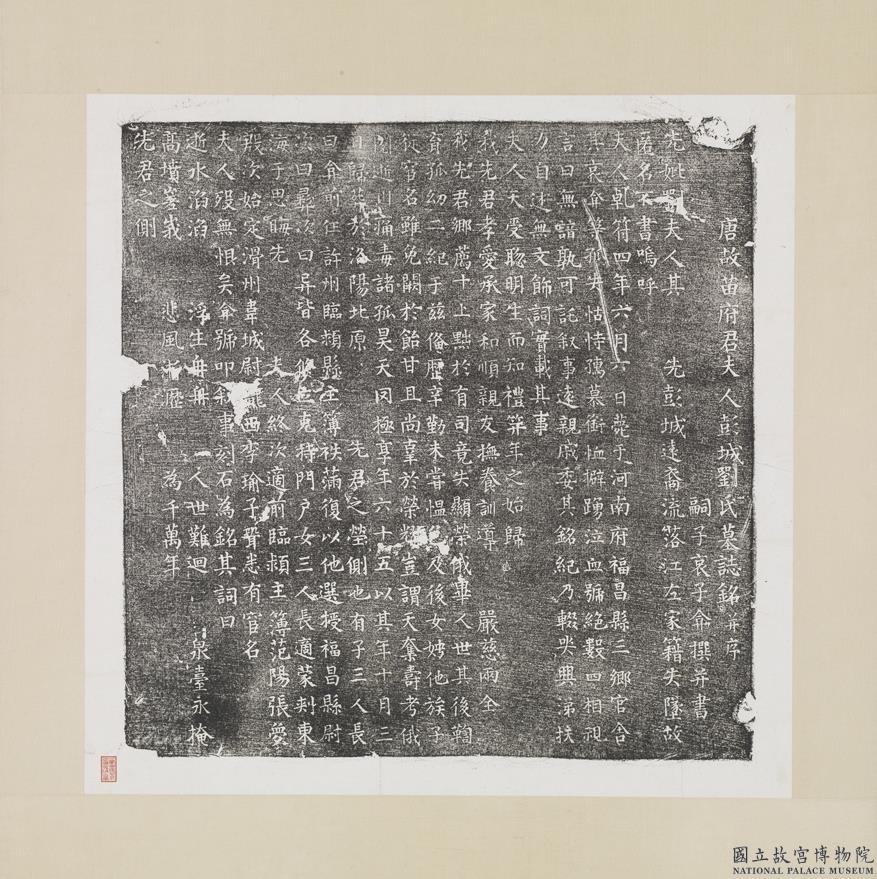 唐故苗府君夫人彭城劉氏墓誌銘并序
嗣子哀子侖撰并書
先妣劉夫人其 先彭城遠裔流落江左家籍失墜故
匿名不書嗚呼
夫人乾符四年六月六日薨于河南府福昌縣三鄉官舍
哀侖等孤失怙恃孺慕銜恤擗踴泣血號絕數四相視
言曰無諳孰可託叙事遠親戚委其銘紀乃輟哭興涕扶
力自述無文飾詞實載其事
夫人天受聰明生而知禮笄年之始歸
我先君孝愛承家和順親友撫養訓導 嚴慈兩全
我先君鄉薦十上黜於有司竟失顯榮俄棄人世其後鞠
育孤幼二紀于茲俻歷辛勤未嘗慍色及後女娉他族子
狄官名雖免闕於飴甘且尚辜於榮耀豈謂天奪壽考俄
逝日痛毒諸孤昊天罔極享年六十五以其年十月三
於洛陽北原 先君之塋側也有子三人長
曰侖前任許州臨潁縣主簿袟滿復以他選授福昌縣尉
次曰彞次曰昇皆各修克持門戶女三人長適蒙州東
海于思晦先 夫人終次適前臨潁主簿范陽張愛
歿次始定滑州韋城尉隴西李瑜子聓悉有官名
夫人歿無恨矣侖號叩敘事刻石為銘其詞曰
逝水滔滔 浮生舟舟 人世難迴 泉臺永掩
高墳峩峩 悲風 歷 為千萬年
先君之側
國立故宮博物院
NATIONAL PALACE MUSEUM